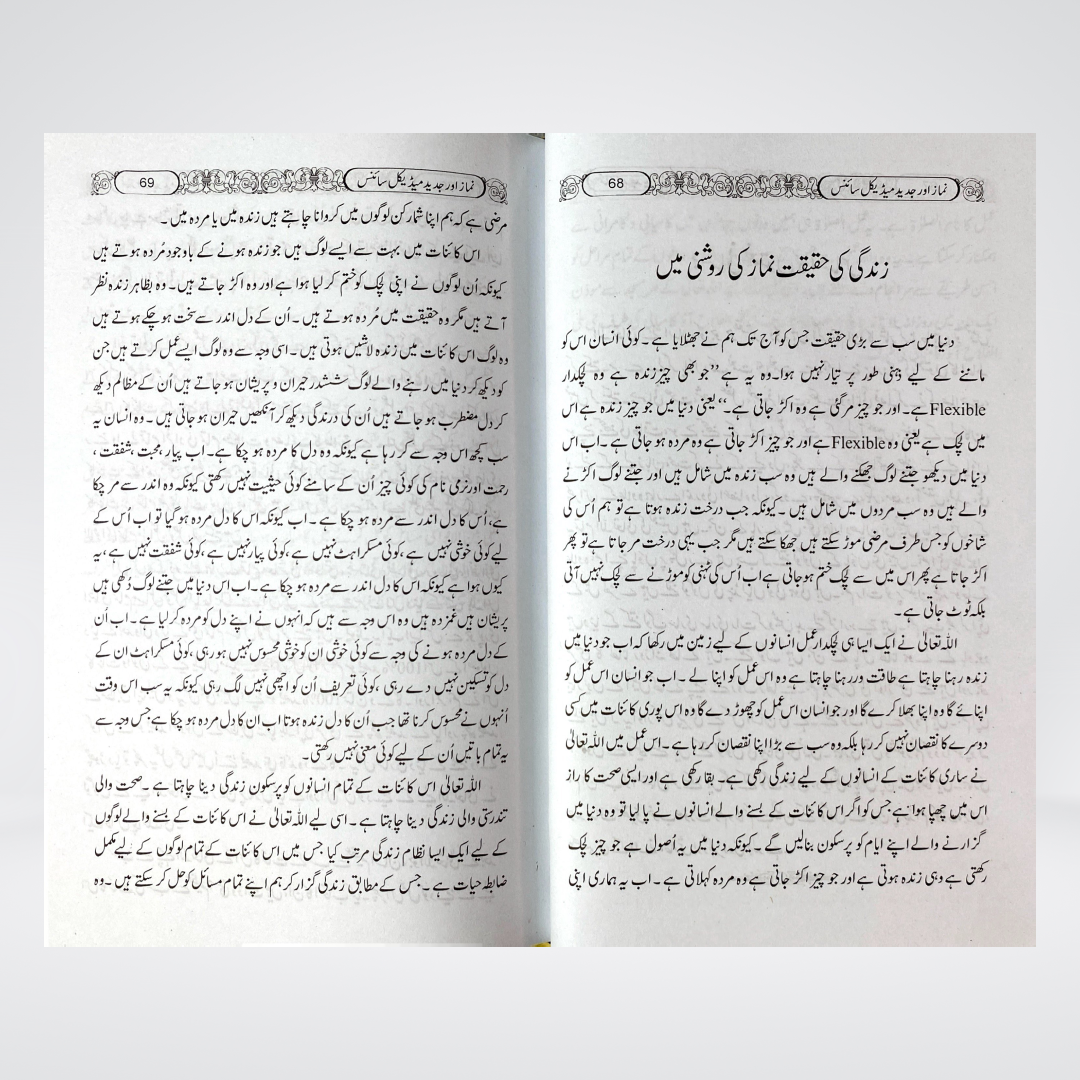 نماز اور جدید میڈیکل سائنس 68
زندگی کی حقیقت نماز کی روشنی میں
دنیا میں سب سے بڑی حقیقت جس کو آج تک ہم نے جھٹلایا ہے۔ کوئی انسان اس کو
ماننے کے لیے ذہنی طور پر تیار نہیں ہوا۔ وہ یہ ہے ’’جو بھی چیز زندہ ہے وہ لچکدار
Flexible ہے۔ اور جو چیز مر گئی ہے وہ اکڑ جاتی ہے۔‘‘ یعنی دنیا میں جو چیز زندہ ہے اس
میں لچک ہے یعنی وہ Flexible ہے اور جو چیز اکڑ جاتی ہے وہ مردہ ہو جاتی ہے۔ اب اس
دنیا میں دیکھو جتنے لوگ جھکنے والے ہیں وہ سب زندہ میں شامل ہیں اور جتنے لوگ اکڑنے
والے ہیں وہ سب مردوں میں شامل ہیں۔ کیونکہ جب درخت زندہ ہوتا ہے تو ہم اُس کی
شاخوں کو جس طرف مرضی موڑ سکتے ہیں جھکا سکتے ہیں مگر جب یہی درخت مر جاتا ہے تو پھر
اکڑ جاتا ہے پھر اس میں سے لچک ختم ہو جاتی ہے اب اُس کی ٹہنی کو موڑنے سے لچک نہیں آتی
بلکہ ٹوٹ جاتی ہے۔
اللہ تعالیٰ نے ایک ایسا ہی لچکدار عمل انسانوں کے لیے زمین میں رکھا کہ اب جو دنیا میں
زندہ رہنا چاہتا ہے طاقت ور رہنا چاہتا ہے وہ اس عمل کو اپنا لے۔ اب جو انسان اس عمل کو
اپنائے گا وہ اپنا بھلا کرے گا اور جو انسان اس عمل کو چھوڑ دے گا وہ اس پوری کائنات میں کسی
دوسرے کا نقصان نہیں کر رہا بلکہ وہ سب سے بڑا اپنا نقصان کر رہا ہے۔ اس عمل میں اللہ تعالیٰ
نے ساری کائنات کے انسانوں کے لیے زندگی رکھی ہے۔ بقا رکھی ہے اور ایسی صحت کا راز
اس میں چھپا ہوا ہے جس کو اگر اس کائنات کے بسنے والے انسانوں نے پا لیا تو وہ دنیا میں
گزارنے والے اپنے ایام کو پرسکون بنالیں گے۔ کیونکہ دنیا میں یہ اُصول ہے جو چیز لچک
رکھتی ہے وہی زندہ ہوتی ہے اور جو چیز اکڑ جاتی ہے وہ مردہ کہلاتی ہے۔ اب یہ ہماری اپنی
نماز اور جدید میڈیکل سائنس 69
مرضی ہے کہ ہم اپنا شمار کن لوگوں میں کروانا چاہتے ہیں زندہ میں یا مردہ میں۔
اس کائنات میں بہت سے ایسے لوگ ہیں جو زندہ ہونے کے باوجود مُردہ ہوتے ہیں
کیونکہ اُن لوگوں نے اپنی لچک کو ختم کر لیا ہوا ہے اور وہ اکڑ جاتے ہیں۔ وہ بظاہر زندہ نظر
آتے ہیں مگر وہ حقیقت میں مُردہ ہوتے ہیں۔ اُن کے دل اندر سے سخت ہو چکے ہوتے ہیں
وہ لوگ اس کائنات میں زندہ لاشیں ہوتی ہیں۔ اسی وجہ سے وہ لوگ ایسے عمل کرتے ہیں جن
کو دیکھ کر دنیا میں رہنے والے لوگ ششدر حیران و پریشان ہو جاتے ہیں اُن کے مظالم دیکھ
کر دل مضطرب ہو جاتے ہیں اُن کی درندگی دیکھ کر آنکھیں حیران ہو جاتی ہیں۔ وہ انسان یہ
سب کچھ اس وجہ سے کر رہا ہے کیونکہ وہ دل کا مردہ ہو چکا ہے۔ اب پیار، محبت، شفقت،
رحمت اور نرمی نام کی کوئی چیز اُن کے سامنے کوئی حیثیت نہیں رکھتی کیونکہ وہ اندر سے مر چکا
ہے، اُس کا دل اندر سے مردہ ہو چکا ہے۔ اب کیونکہ اس کا دل مردہ ہو گیا تو اب اُس کے
لیے کوئی خوشی نہیں ہے، کوئی مسکراہٹ نہیں ہے، کوئی پیار نہیں ہے، کوئی شفقت نہیں ہے، یہ
کیوں ہوا ہے کیونکہ اس کا دل اندر سے مردہ ہو چکا ہے۔ اب اس دنیا میں جتنے لوگ دُکھی ہیں
پریشان ہیں غمزدہ ہیں وہ اس وجہ سے ہیں کہ انہوں نے اپنے دل کو مردہ کر لیا ہے۔ اب اُن
کے دل مردہ ہونے کی وجہ سے کوئی خوشی ان کو خوشی محسوس نہیں ہو رہی، کوئی مسکراہٹ ان کے
دل کو تسکین نہیں دے رہی، کوئی تعریف اُن کو اچھی نہیں لگ رہی کیونکہ یہ سب اس وقت
اُنہوں نے محسوس کرنا تھا جب اُن کا دل زندہ ہوتا اب ان کا دل مردہ ہو چکا ہے جس وجہ سے
یہ تمام باتیں اُن کے لیے کوئی معنی نہیں رکھتی۔
اللہ تعالیٰ اس کائنات کے تمام انسانوں کو پرسکون زندگی دینا چاہتا ہے۔ صحت والی
تندرستی والی زندگی دینا چاہتا ہے۔ اسی لیے اللہ تعالیٰ نے اس کائنات کے بسنے والے لوگوں
کے لیے ایک ایسا نظام زندگی مرتب کیا جس میں اس کائنات کے تمام لوگوں کے لیے مکمل
ضابطہ حیات ہے۔ جس کے مطابق زندگی گزار کر ہم اپنے تمام مسائل کو حل کر سکتے ہیں۔ وہ